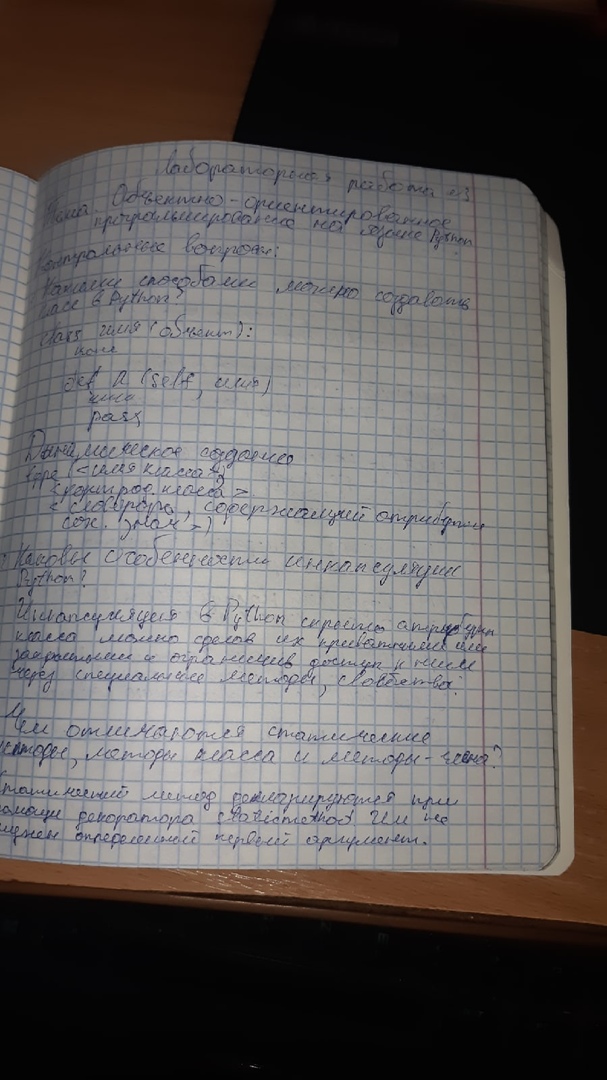 Лабораторная работа №3
Тема: Объектно-ориентированное
программирование на языке Python
Контрольные вопросы:
Какими способами можно создавать
класс в Python?
class имя (объект):
def (self, имя)
pass
Динамическое создание
type (<имя класса>,
класса>
<словарь, содержащий атрибуты
Каковы особенности инкапсуляции
Python?
Инкапсуляция в Python скрыть атрибуты
класса можно сделав их приватными или
закрытыми и ограничив доступ к ним
через специальные методы, свойства.
Чем отличаются статические
методы, методы класса и методы-члена?
Статический метод декларируется при
помощи декоратора staticmethod Им не
нужен определенный первый аргумент.